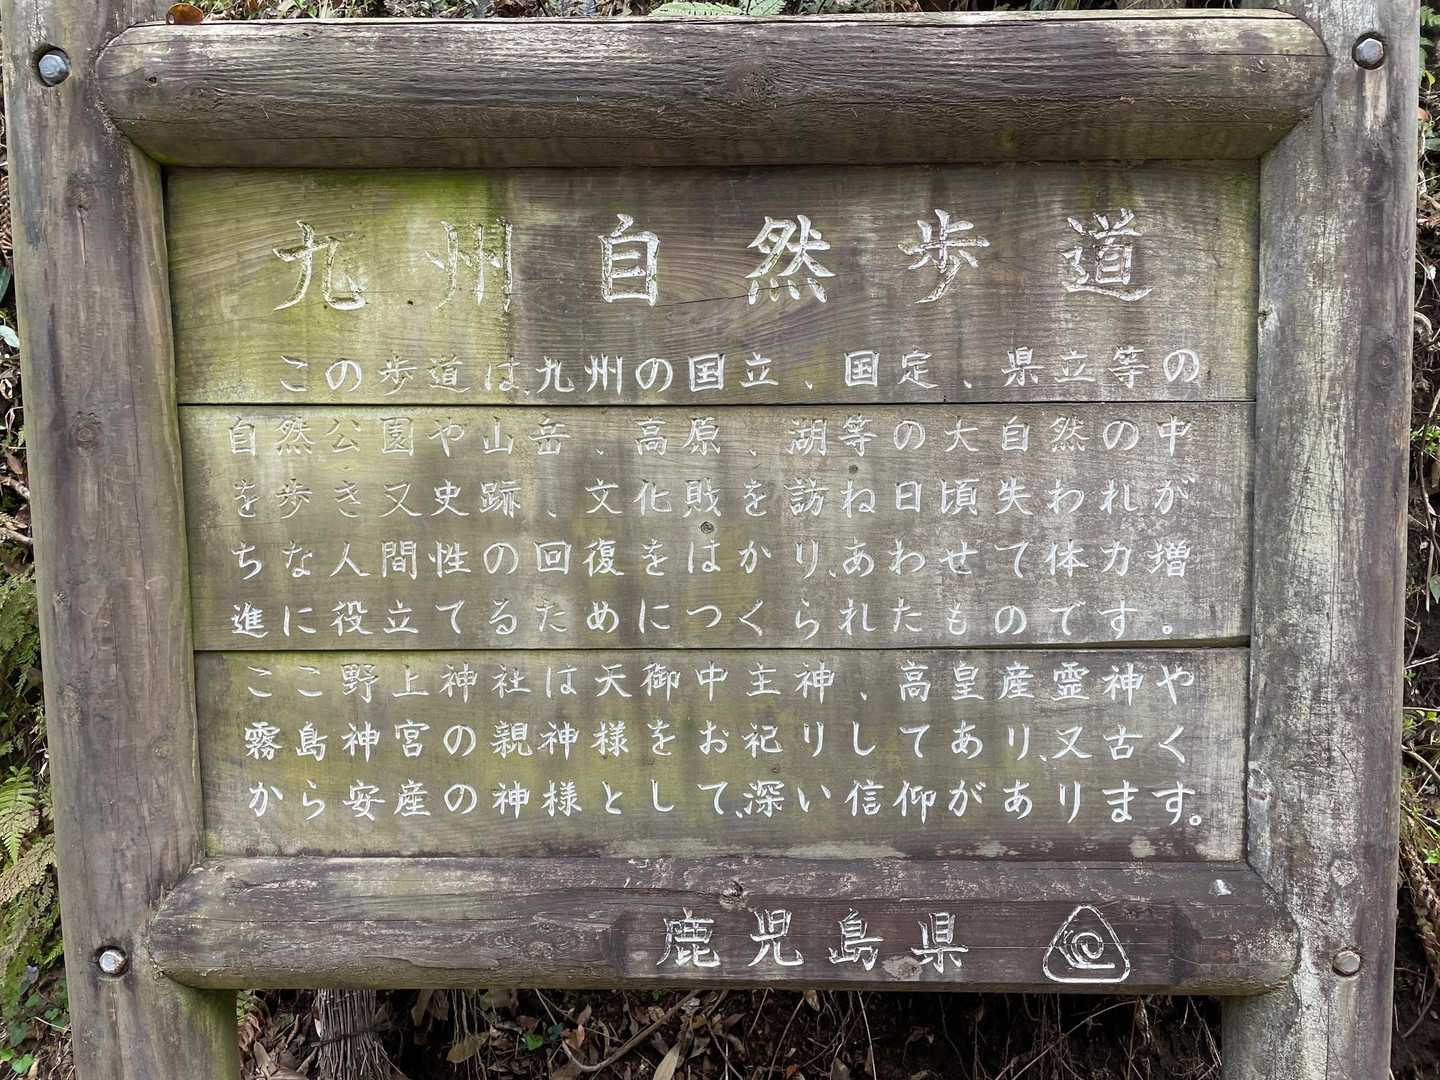 九州自然歩道
この歩道は、九州の国立、国定、県立等の
自然公園や山岳、高原、湖等の大自然の中
を歩き又史跡、文化財を訪ね日頃失われが
ちな人間性の回復をはかり、あわせて体力増
進に役立てるためにつくられたものです。
ここ野上神社は天御中主神、高皇産霊神や
霧島神宮の親神様をお祀りしてあり、又古く
から安産の神様として、深い信仰があります。
鹿児島県